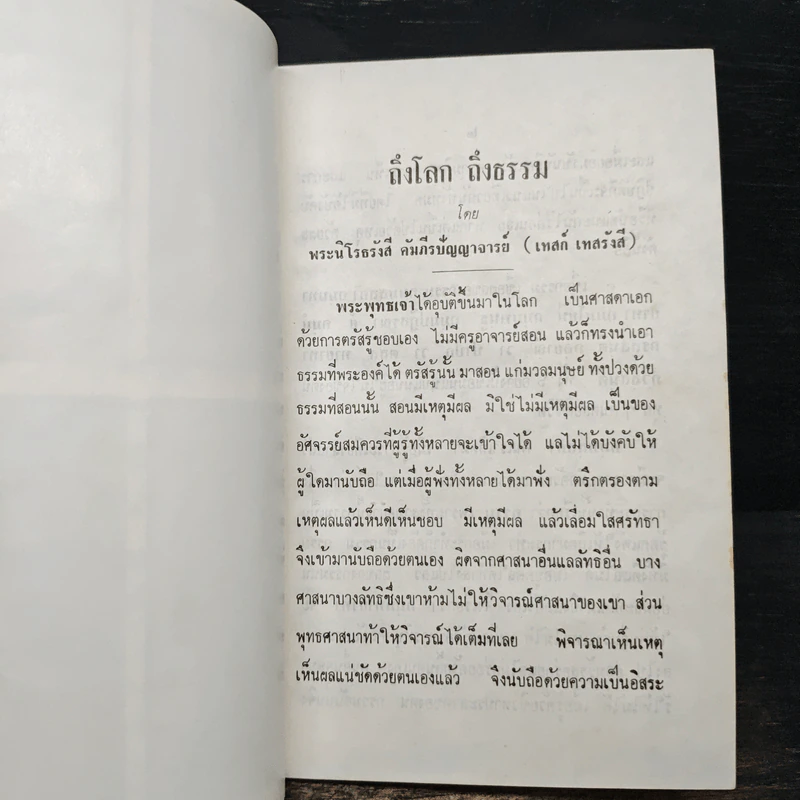 ถึงโลก ถึงธรรม
โดย
พระนิโรธรังสี คัมภีรปัญญาจารย์ (เทสก์ เทสรังสี)
พระพุทธเจ้าได้อุบัติขึ้นมาในโลก เป็นศาสดาเอก
ด้วยการตรัสรู้ชอบเอง ไม่มีครูอาจารย์สอน แล้วก็ทรงนำเอา
ธรรมที่พระองค์ได้ ตรัสรู้นั้น มาสอน แก่มวลมนุษย์ ทั้งปวงด้วย
ธรรมที่สอนนั้น สอนมีเหตุมีผล มิใช่ไม่มีเหตุมีผล เป็นของ
อัศจรรย์สมควรที่ผู้รู้ทั้งหลายจะเข้าใจได้ แลไม่ได้บังคับให้
ผู้ใดมานับถือ แต่เมื่อผู้ฟังทั้งหลายได้มาฟัง ตริกตรองตาม
เหตุผลแล้วเห็นดีเห็นชอบ มีเหตุมีผล แล้วเลื่อมใสศรัทธา
จึงเข้ามานับถือด้วยตนเอง ผิดจากศาสนาอื่นแลลัทธิอื่น บาง
ศาสนาบางลัทธิซึ่งเขาห้ามไม่ให้วิจารณ์ศาสนาของเขา ส่วน
พุทธศาสนาท้าให้วิจารณ์ได้เต็มที่เลย พิจารณาเห็นเหตุ
เห็นผลแน่ชัดด้วยตนเองแล้ว จึงนับถือด้วยความเป็นอิสระ